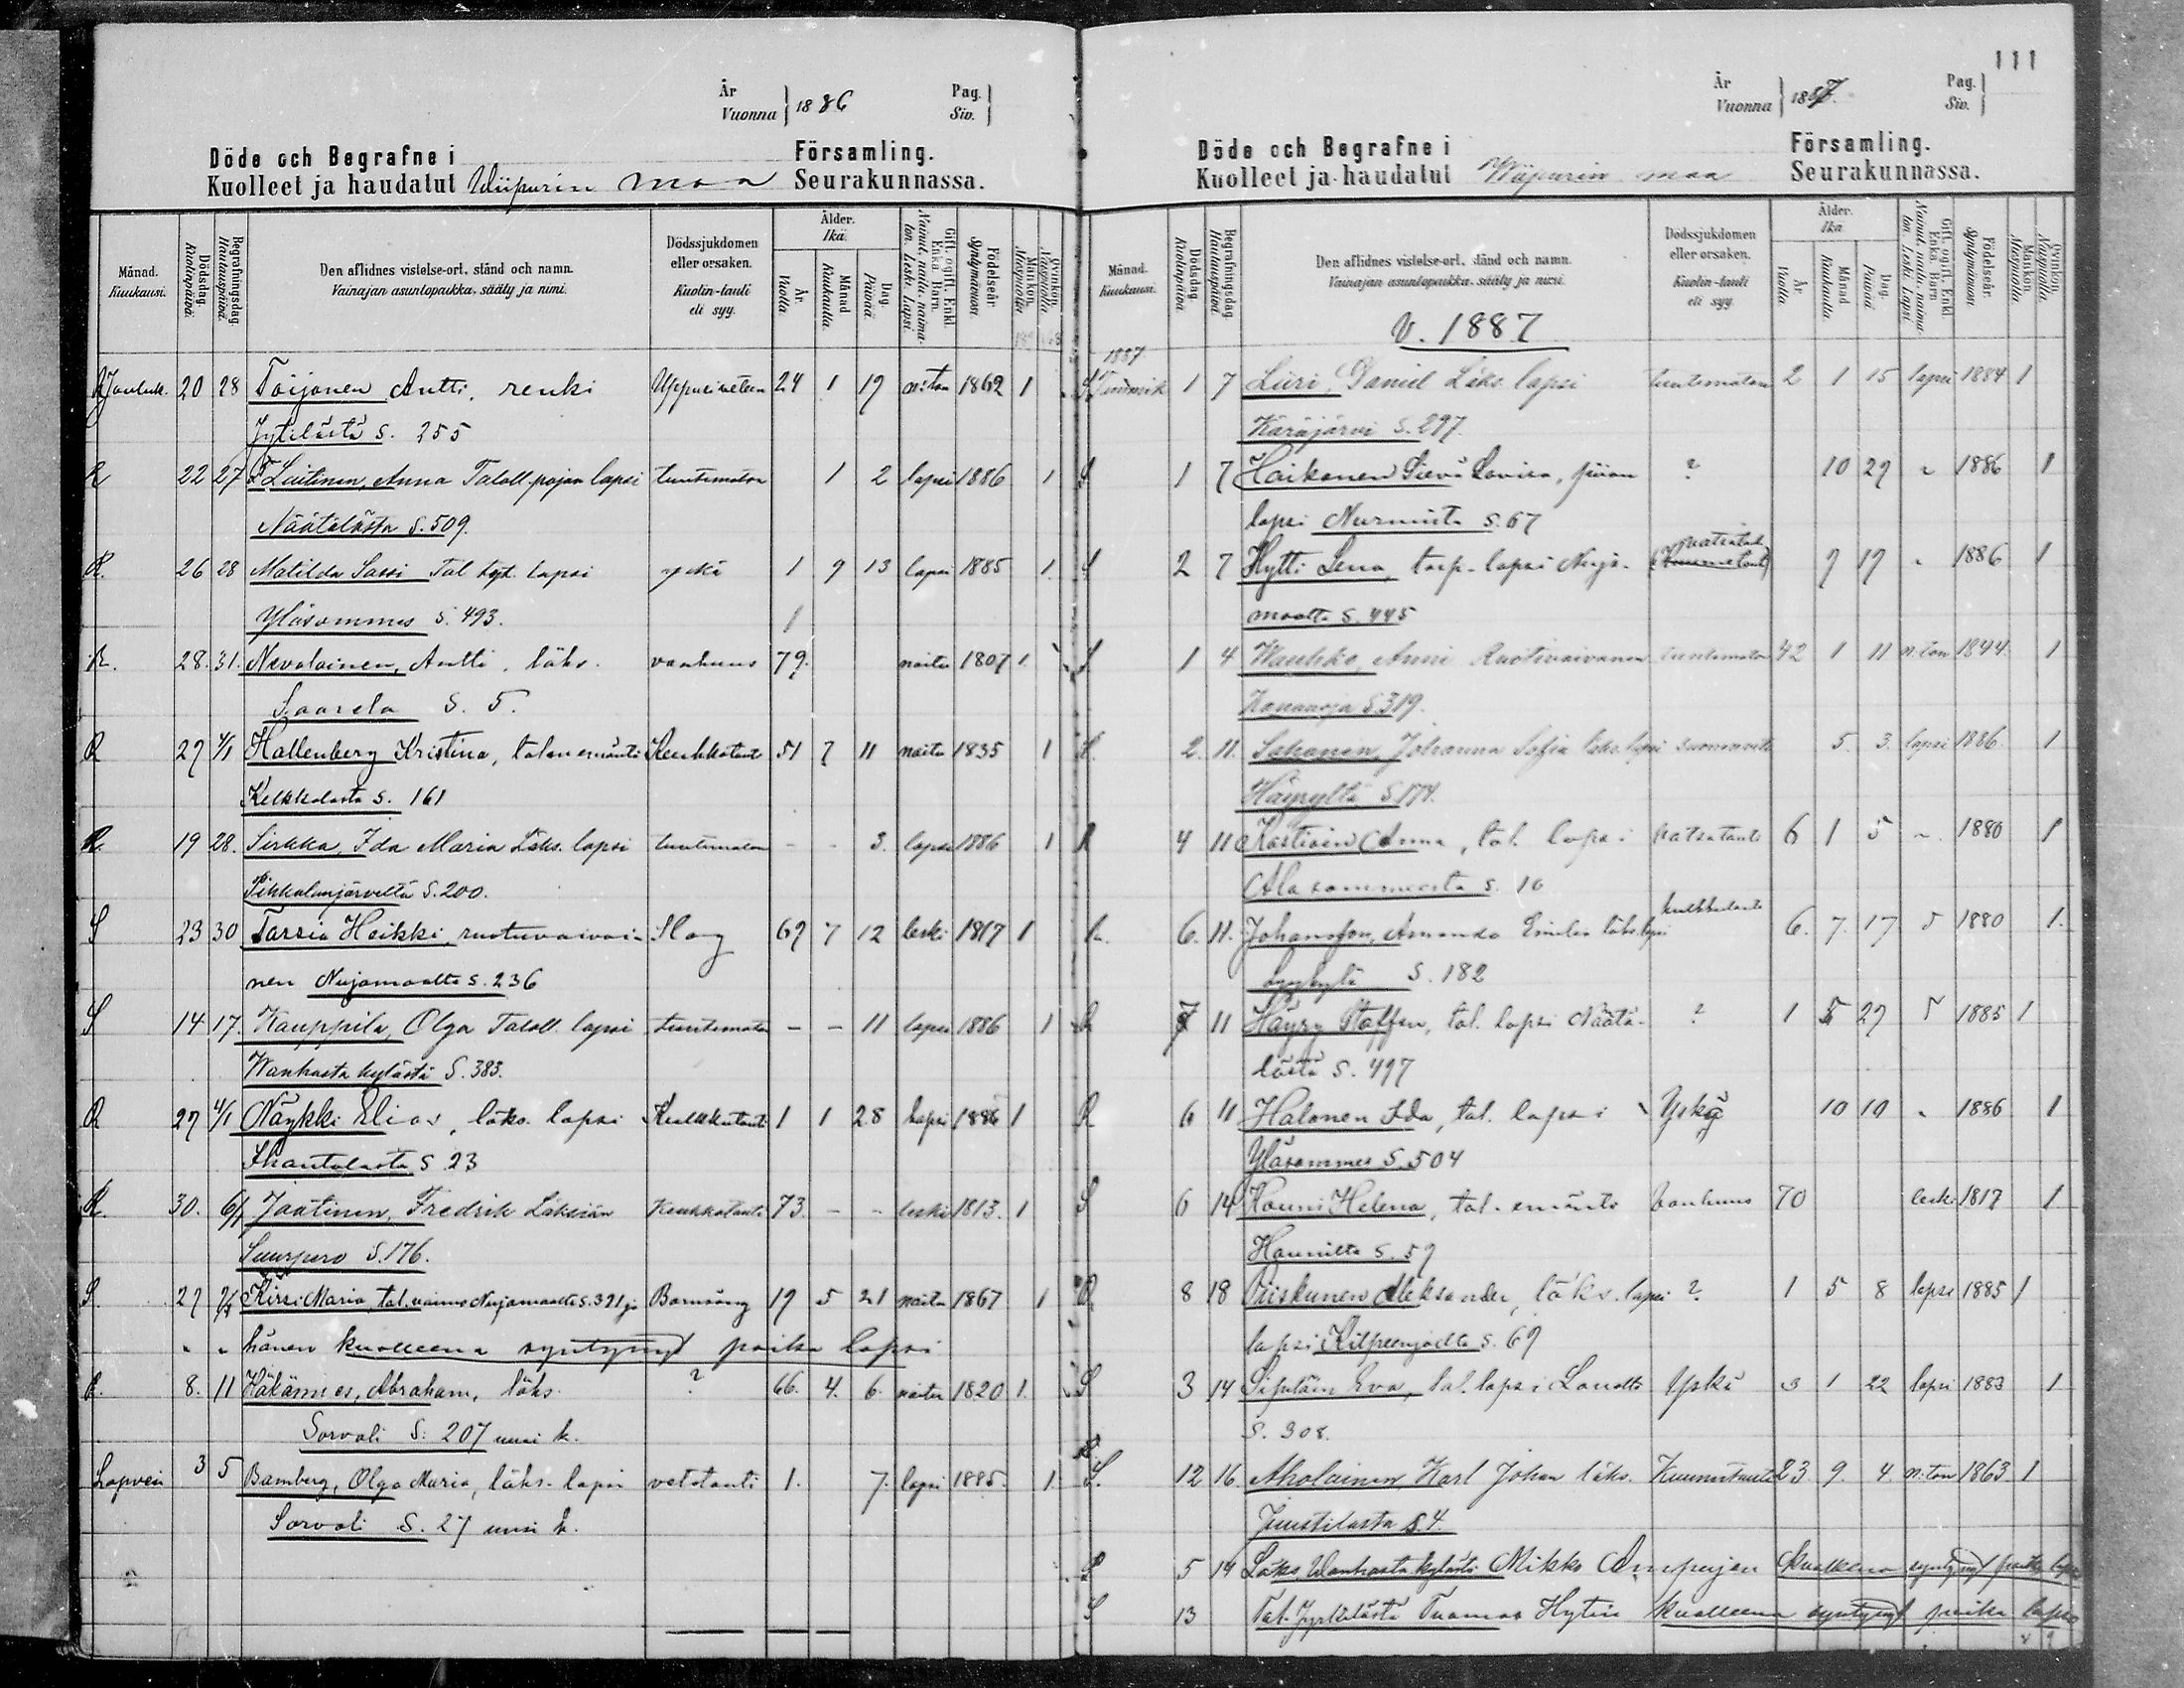 År
Vuonna } 1886
Pag.
Siv. }
Döde och Begrafne i Församling.
Kuolleet ja haudatut Wiipurin maa Seurakunnassa.
Månad. Kuukausi.
Dödsdag. Kuolinpäivä.
Begrafningsdag. Hautauspäivä.
Den aflidnes vistelse-ort, stånd och namn.
Vainajan asuntopaikka, sääty ja nimi.
Dödssjukdomen eller orsaken.
Kuolin-tauti eli syy.
Ålder. Ikä.
År. Vuotta.
Månad Kuukautta.
Dag. Päivää
Gift, ogift. Enkl. Enka. Barn.
Nainut, naitu, naimaton. Leski. Lapsi.
Födelseår. Syntymävuosi.
Mankön. Miespuolta.
Qvinkön. Vaispuolta.
R Jouluk. 20 28 Toijonen Antti, renki 24 1 19 n:ton 1862 1
Jytilästä S. 255
R 22 27 Laitinen, Anna Taloll. pojan lapsi tuntematon 1 2 lapsi 1886 1
Näätälästä S. 509.
R. 26 28 Matilda Sassi Tal. lapsi yskä 1 9 13 lapsi 1885 1
Yläsommes S. 493.
R. 28. 31. Nevalainen, Antti, läks. vanhuus 79. naitu 1807 1.
Saarela S. 5.
R 27 4/1 Hallenberg Kristina, talon emäntä Keuhkotauti 51 7 11 naitu 1835 1
Kelkkalasta S. 161
R. 19 28. Sirkka, Ida Maria Läks. lapsi tuntematon - - 3. lapsi 1886 1
Pihkalanjärveltä S. 200.
S 23 30 Tassia Heikki, ruotuvaivai- Slag 69 7 12 leski 1817 1
nen Nuijamaalta S. 236
S 14 17. Kauppila, Olga Taloll. lapsi tuntematon - - 11 lapsi 1886 1
Wanhasta kylästä S. 383.
R 27 4/1 Näykki Elias, läks. lapsi 1 1 28 lapsi 1886 1
Ihantalasta S 23
R. 30. 6/1 Jäätinen, Fredrik Läksiän Keuhkotauti 73. - - leski 1813. 1
Suurpero S. 176.
S. 27 Kirsi Maria, tal. vaimo Nuijamaalta S. 321 ja Barnsäng 19 5 21 naitu 1867 1
" " hänen kuolleena syntynyt poika lapsi
R. 8. 11 Häkämies, Abraham, läks. ? 66. 4. 6. naitu 1820 1.
Sorvali S: 207 uusi k.
3 5 Bamberg, Olga Maria, läks. lapsi vetotauti 1. 7. lapsi 1885. 1.
Sorvali S. 27 uusi k.
111
År
Vuonna } 1887.
Pag.
Siv. }
Döde och Begrafne i Församling.
Kuolleet ja haudatut Wiipurin maa Seurakunnassa.
Månad. Kuukausi.
Dödsdag. Kuolinpäivä.
Begrafningsdag. Hautauspäivä.
Den aflidnes vistelse-ort, stånd och namn.
Vainajan asuntopaikka, sääty ja nimi.
Dödssjukdomen eller orsaken.
Kuolin-tauti eli syy
Ålder. Ikä
År. Vuotta.
Månad. Kuukautta.
Dag. Päivää.
Gift, ogift. Enkl. Enka. Barn
Nainut, naitu, naimaton. Leski. Lapsi.
Födelseår. Syntymävuosi.
Mankön. Miespuolta.
Qvinkön. Vaispuolta.
V. 1887
1887
S Tammik 1 7 Liiri, Daniel Läks. lapsi tuntematon 2 1 15 lapsi 1884 1
Käräjärvi S. 297.
S 1 7 Haikonen Sievä Lovisa, piian ? 10 29 " 1886 1
lapsi Nurmista S. 67
S 2 7 Hytti Lena, torp. lapsi Nuija- 9 19 " 1886 1
maalta S. 445
S 1 4 Wauhko, Anni Ruotivaivanen tuntematon 42 1 11 n:ton 1844. 1
Kananoja S. 319.
R. 2. 11. Sahanen, Johanna Sofia läks. lapsi 5. 3. lapsi 1886. 1
Häyryltä S. 174.
R 4 11 Kostiain Anna, tal. lapsi 6 1 5 " 1880 1
Alasommeesta S. 16
R. 6. 11. Johansson, Amanda Emilia läks. lapsi kurkkutauti 6. 7. 17 " 1880 1.
S. 182
R 7 11 Häyry Staffan, tal. lapsi Näätä- ? 1 5 27 " 1885 1
lästä S. 497
R 6 11 Halonen Ida, tal. lapsi Yskä 10 10 " 1886 1
Yläsommes S. 504
S 6 14 Hauni Helena, tal. emäntä Vanhuus 70 leski 1817 1
Haunilta S. 59
R 8 18 Viiskunen Aleksander, läks. lapsi ? 1 5 8 lapsi 1885 1
lapsi Kilpeenjoelta S. 69
S 3 14 Sipiläin Eva, tal. lapsi Yskä 3 1 22 lapsi 1883 1
S. 308.
S. 12 16. Aholainen, Karl Johan läks. Kuumetauti 23 9. 4 n:ton 1863 1
Juustilasta S. 4.
S 5 14 Läks. Wanhasta kylästä Mikko Ampujan kuolleena syntynyt poika lapsi
S 13 Tal. Jyrkilästä Tuomas Hytin kuolleena syntynyt poika lapsi